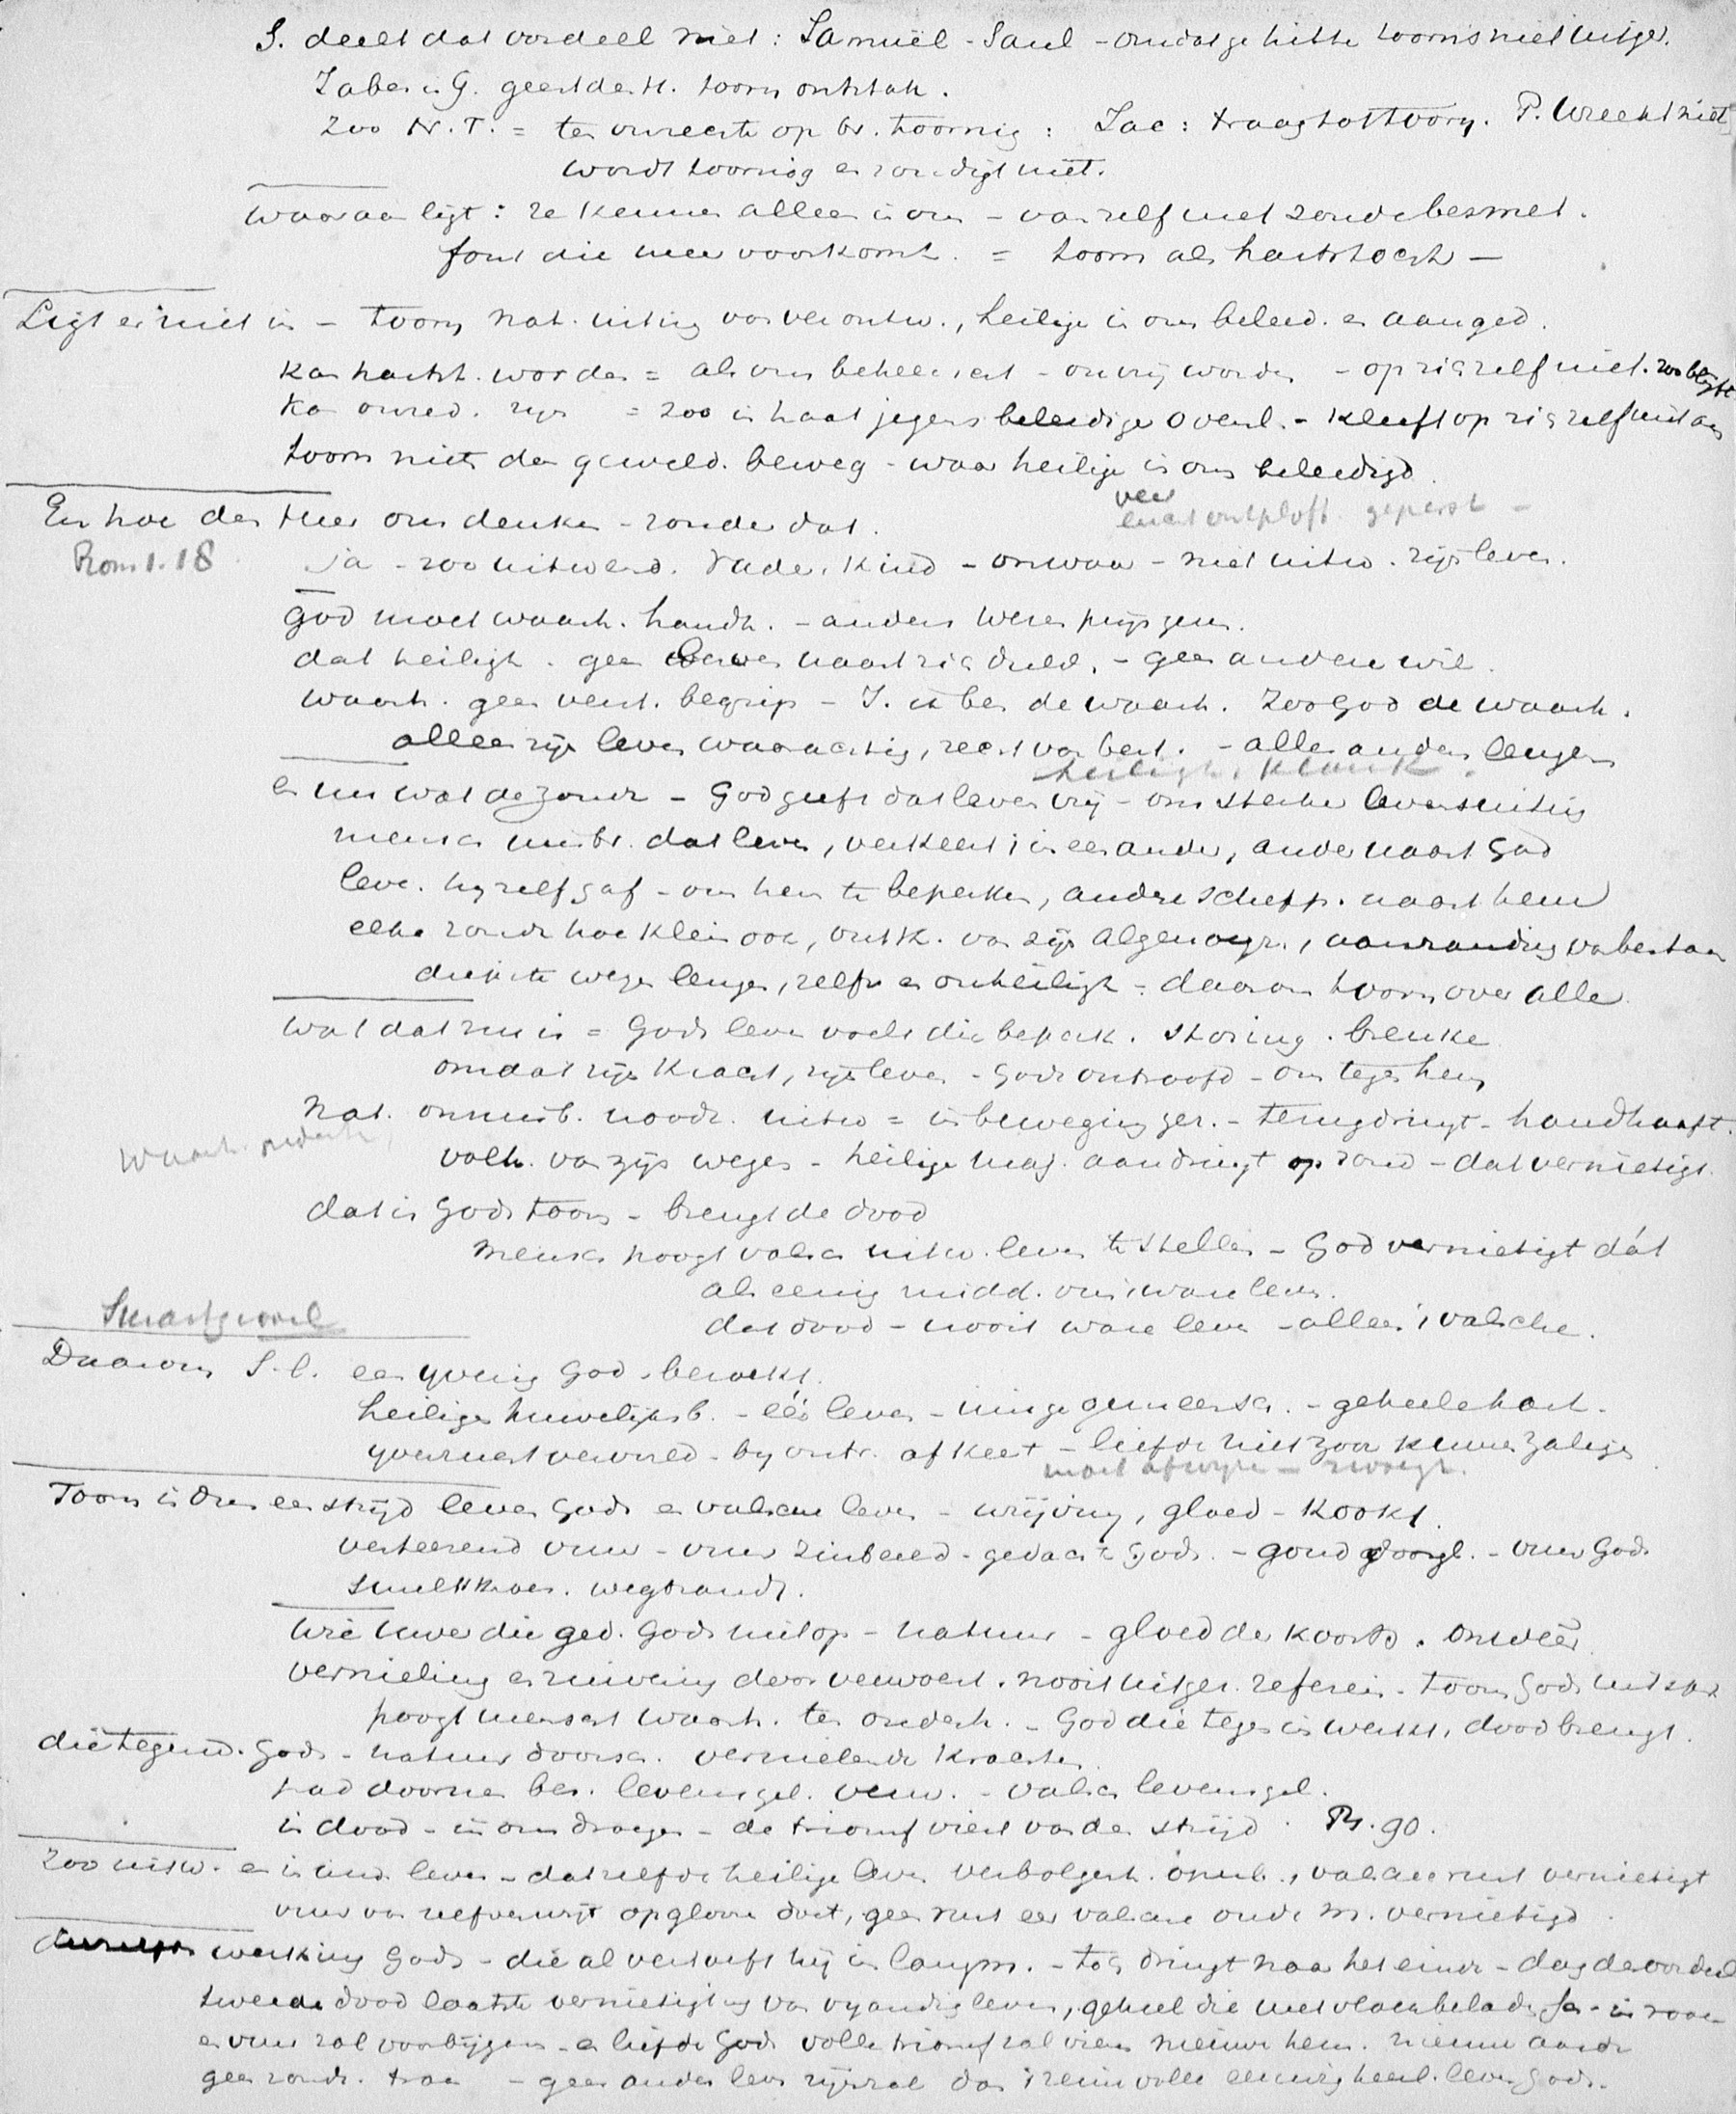 S. deelt dat oordeel niet: Samuël - Saul - omdat ge hitte toorns niet uitger.
Jabes in G. geest des H. toorn ontstak.
Zoo N.T. = ten onrechte op br. toornig: Jac: traag tot toorn. P. Wreekt niet
wordt toornig en zondigt niet.
Waaraan ligt: ze kennen alleen in ons - vanzelf met zonde besmet.
fout die meer voorkomt. = toorn als hartstocht -
Ligt er niet in - toorn nat. uiting van verontw., heilige in ons beleed. en aanged.
kan hartst. worden = als ons beheerscht - onvrij worden - op zich zelf niet. zoo
kan onred. zijn = zoo in haat jegens beleediger overl. - kleeft op zich zelf niet aan
toorn niets dan geweld. beweg - waar heilige in ons beleedigd.
En hoe den Heer ons denken - zonder dat.
ontploft geperst -
Rom 1.18 Ja - zoo uitwend. Vader, kind - onwaar - niet uitw. zijn leven.
God moet waarh. handh. - anders Wezen prijsgeven.
dat heiligh. geen leven naast zich duld. - geen anderen wil.
waarh. geen verst. begrip - J. ik ben de waarh. Zoo God de waarh.
alleen zijn leven waarachtig, recht van best. - alle andere leugen
heiligh. klank.
en nu wat de zonde - God geeft dat leven vrij - om sterke levensuiting
mensch misbr. dat leven, verkeert in een ander, ander naast God
leve. hij zelf gaf - om hem te beperken, andere schepp. naast hem
elke zonde hoe klein ook, ontk. van zijn algenoegz., aanranding van bestaan
diepste wezen leugen, zelfs en onheiligh. - daarom toorn over alle
Wat dat nu is = Gods leven voelt die beperk. storing. breuke
omdat zijn kracht, zijn leven - God ontroofd - om tegen hem
Nat. onmidd. noodz. uitw = in beweging ger. - terugdringt - handhaaft.
Waarh. onderh.
volh. van zijn wezen - heilige maj. aandringt op zond - dat vernietigt.
dat is Gods toorn - brengt de dood
Mensch poogt valsch uitw. leven te stellen - God vernietigt dát
als eenig midd. om ware leven.
Smartgevoel
dat dood - nooit ware leven - alleen valsche.
Daarom S.l. een yverig God - berockt.
heilige huwelijksb. - één leven - innige gemeensch. - geheele hart.
yver niet verwond - bij ontr. afkeer - liefde niet kunnen zaligen
moet afwyzen -
Toorn is dus een strijd leven Gods en valsche leven - wrijving, gloed - kookt.
verteerend vuur - vuur zinbeeld - gedachte Gods. - goud doorgl. - vuur Gods
smeltkroes. wegbrandt.
Wie merkt die ged. Gods niet op - natuur - gloed der koorts. onweêr
vernieling en zuivering door verwoest. nooit uitger. - toorn Gods
poogt mensch waarh. ten onderh. - God die tegen in werkt, dood brengt.
die tegenw. Gods - natuur doorsch. vernielende krachten
pad doornen bes. levensgel. verw. - valsch levensgel.
in dood - in ons dragen - de triomf viert van den strijd. Ps. 90.
Zoo uitw. en in inw. leven - datzelfde heilige leven verbolgenh. openb., valsche rust vernietigt
vuur van zelfverwijt opgloren doet, geen rust eer valsche oude M. vernietigd.
werking Gods - die al vertoeft hij in langm. - toch dringt naar het einde - dag des oordeels
tweede dood laatste vernietiging van vyandig leven, geheel die met vloek beladen
en vuur zal voorbijgaan - en liefde Gods volle triomf zal vieren nieuwe hem. nieuwe aarde
geen zonde. traan - geen ander leven zijn zal dan reine volle eeuwig heerl. leven Gods.